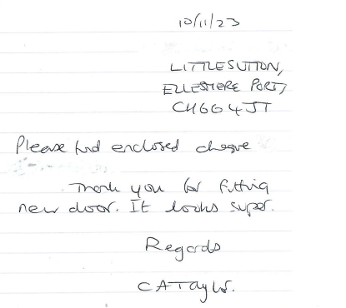 10/11/23
LITTLE SUTTON,
ELLESMERE PORT,
CH66 4JT
Please find enclosed cheque
Thank you for fitting
new door. It looks super.
Regards
C A Taylor.